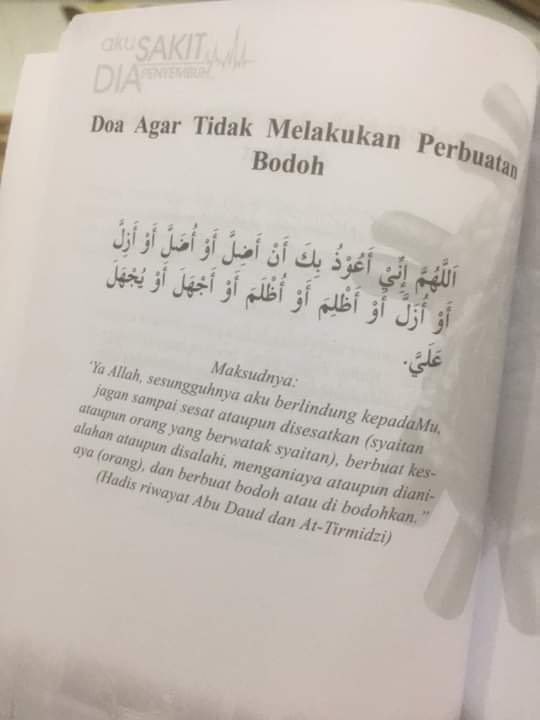 aku SAKIT
DIA PENYEMBUH
Doa Agar Tidak Melakukan Perbuatan
Bodoh
اَللَّهُمَّ إِنِّيْ أَعُوْذُ بِكَ أَنْ أَضِلَّ أَوْ أُضَلَّ أَوْ أَزِلَّ
أَوْ أُزَلَّ أَوْ أَظْلِمَ أَوْ أُظْلَمَ أَوْ أَجْهَلَ أَوْ يُجْهَلَ
عَلَيَّ.
Maksudnya:
'Ya Allah, sesungguhnya aku berlindung kepadaMu,
jagan sampai sesat ataupun disesatkan (syaitan
ataupun orang yang berwatak syaitan), berbuat kes-
alahan ataupun disalahi, menganiaya ataupun diani-
aya (orang), dan berbuat bodoh atau di bodohkan.”
(Hadis riwayat Abu Daud dan At-Tirmidzi)